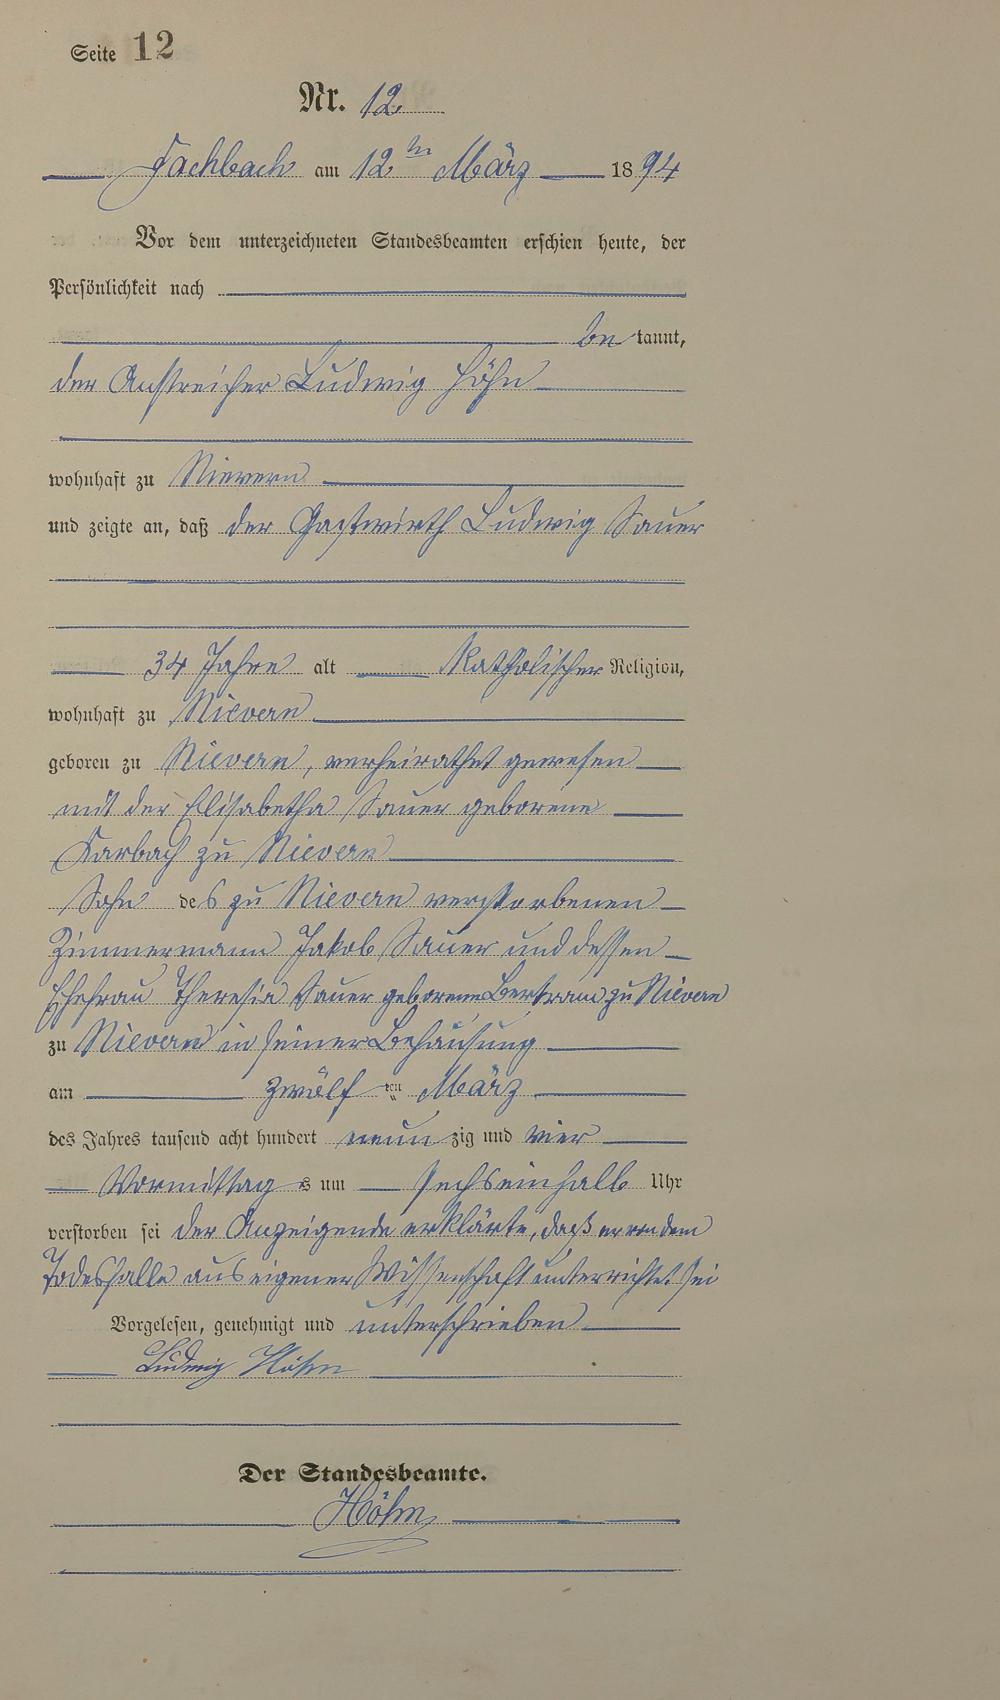 Seite 12
Nr. 12
Fachbach am 12ten März 1894
Vor dem unterzeichneten Standesbeamten erschien heute, der
Persönlichkeit nach
be kannt,
der Anstreicher Ludwig Höhn
wohnhaft zu Nievern
und zeigte an, daß der Gastwirth Ludwig Sauer
34 Jahre alt Katholischer Religion,
wohnhaft zu Nievern
geboren zu Nievern, verheirathet gewesen
mit der Elisabetha Sauer geborene
Karbach zu Nievern
Sohn des zu Nievern verstorbenen
Zimmermann Jakob Sauer und dessen
Ehefrau Theresia Sauer geborene Bertram zu Nievern
zu Nievern in seiner Behausung
am zwölf ten März
des Jahres tausend acht hundert neun zig und vier
Vormittag s um sechseinhalb Uhr
verstorben sei der Anzeigende erklärte, daß er von dem
Todesfalle aus eigener Wissenschaft unterrichtet sei
Vorgelesen, genehmigt und unterschrieben
Ludwig Höhn
Der Standesbeamte.
Höhn